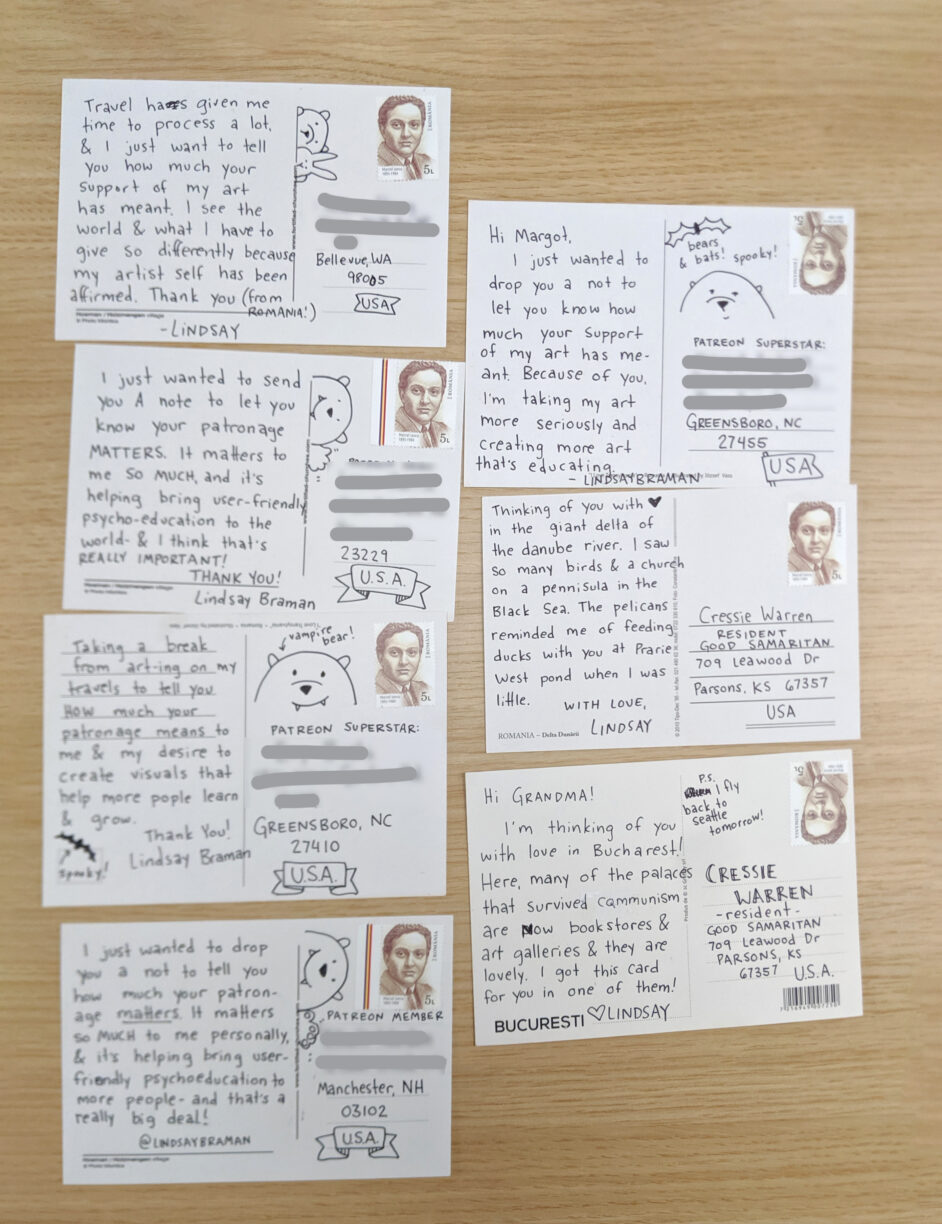 Travel has given me
time to process a lot,
& I just want to tell
you how much your
support of my art
has meant. I see the
world & what I have to
give so differently because
my artist self has been
affirmed. Thank you (from
ROMANIA!)
-LINDSAY
ROMANIA
5L
Bellevue, WA
98005
USA
I just wanted to send
you A note to let you
know your patronage
MATTERS. It matters to
me SO MUCH, and it's
helping bring user-friendly
psycho-education to the
world- & I think that's
REALLY IMPORTANT!
THANK YOU!
Lindsay Braman
ROMANIA
5L
23229
U.S.A.
Taking a break
from art-ing on my
travels to tell you
HOW much your
patronage means to
me & my desire to
create visuals that
help more pople learn
& grow.
Thank You!
Lindsay Braman
spooky!
vampire
bear!
ROMANIA
5L
PATREON SUPERSTAR:
GREENSBORO, NC
27410
U.S.A.
I just wanted to drop
you a not to tell you
how much your patron-
age matters. It matters
so MUCH to me personally,
& it's helping bring user-
friendly psychoeducation to
more people- and that's a
really big deal!
@LINDSAYBRAMAN
ROMANIA
5L
PATREON MEMBER
Manchester, NH
03102
U.S.A.
Hi Margot,
I just wanted to
drop you a not to
let you know how
much your support
of my art has me-
ant. Because of you,
I'm taking my art
more seriously and
creating more art
that's educating.
- LINDSAYBRAMAN
bears
& bats! spooky!
ROMANIA
5L
PATREON SUPERSTAR:
GREENSBORO, NC
27455
USA
Thinking of you with ♥
in the giant delta of
the danube river. I saw
so many birds & a church
on a pennisula in the
Black Sea. The pelicans
reminded me of feeding
ducks with you at Prarie
West pond when I was
little.
WITH LOVE,
LINDSAY
ROMANIA – Delta Dunării
ROMANIA
5L
Cressie Warren
RESIDENT
GOOD SAMARITAN
709 Leawood Dr
Parsons, KS 67357
USA
Hi GRANDMA!
I'm thinking of you
with love in Bucharest!
Here, many of the palaces
that survived communism
are Now bookstores &
art galleries & they are
lovely. I got this card
for you in one of them!
BUCURESTI ♡ LINDSAY
P.S.
I fly
back to
seattle
tomorrow!
ROMANIA
5L
CRESSIE
WARREN
- resident -
GOOD SAMARITAN
709 Leawood Dr
PARSONS, KS
67357 U.S.A.